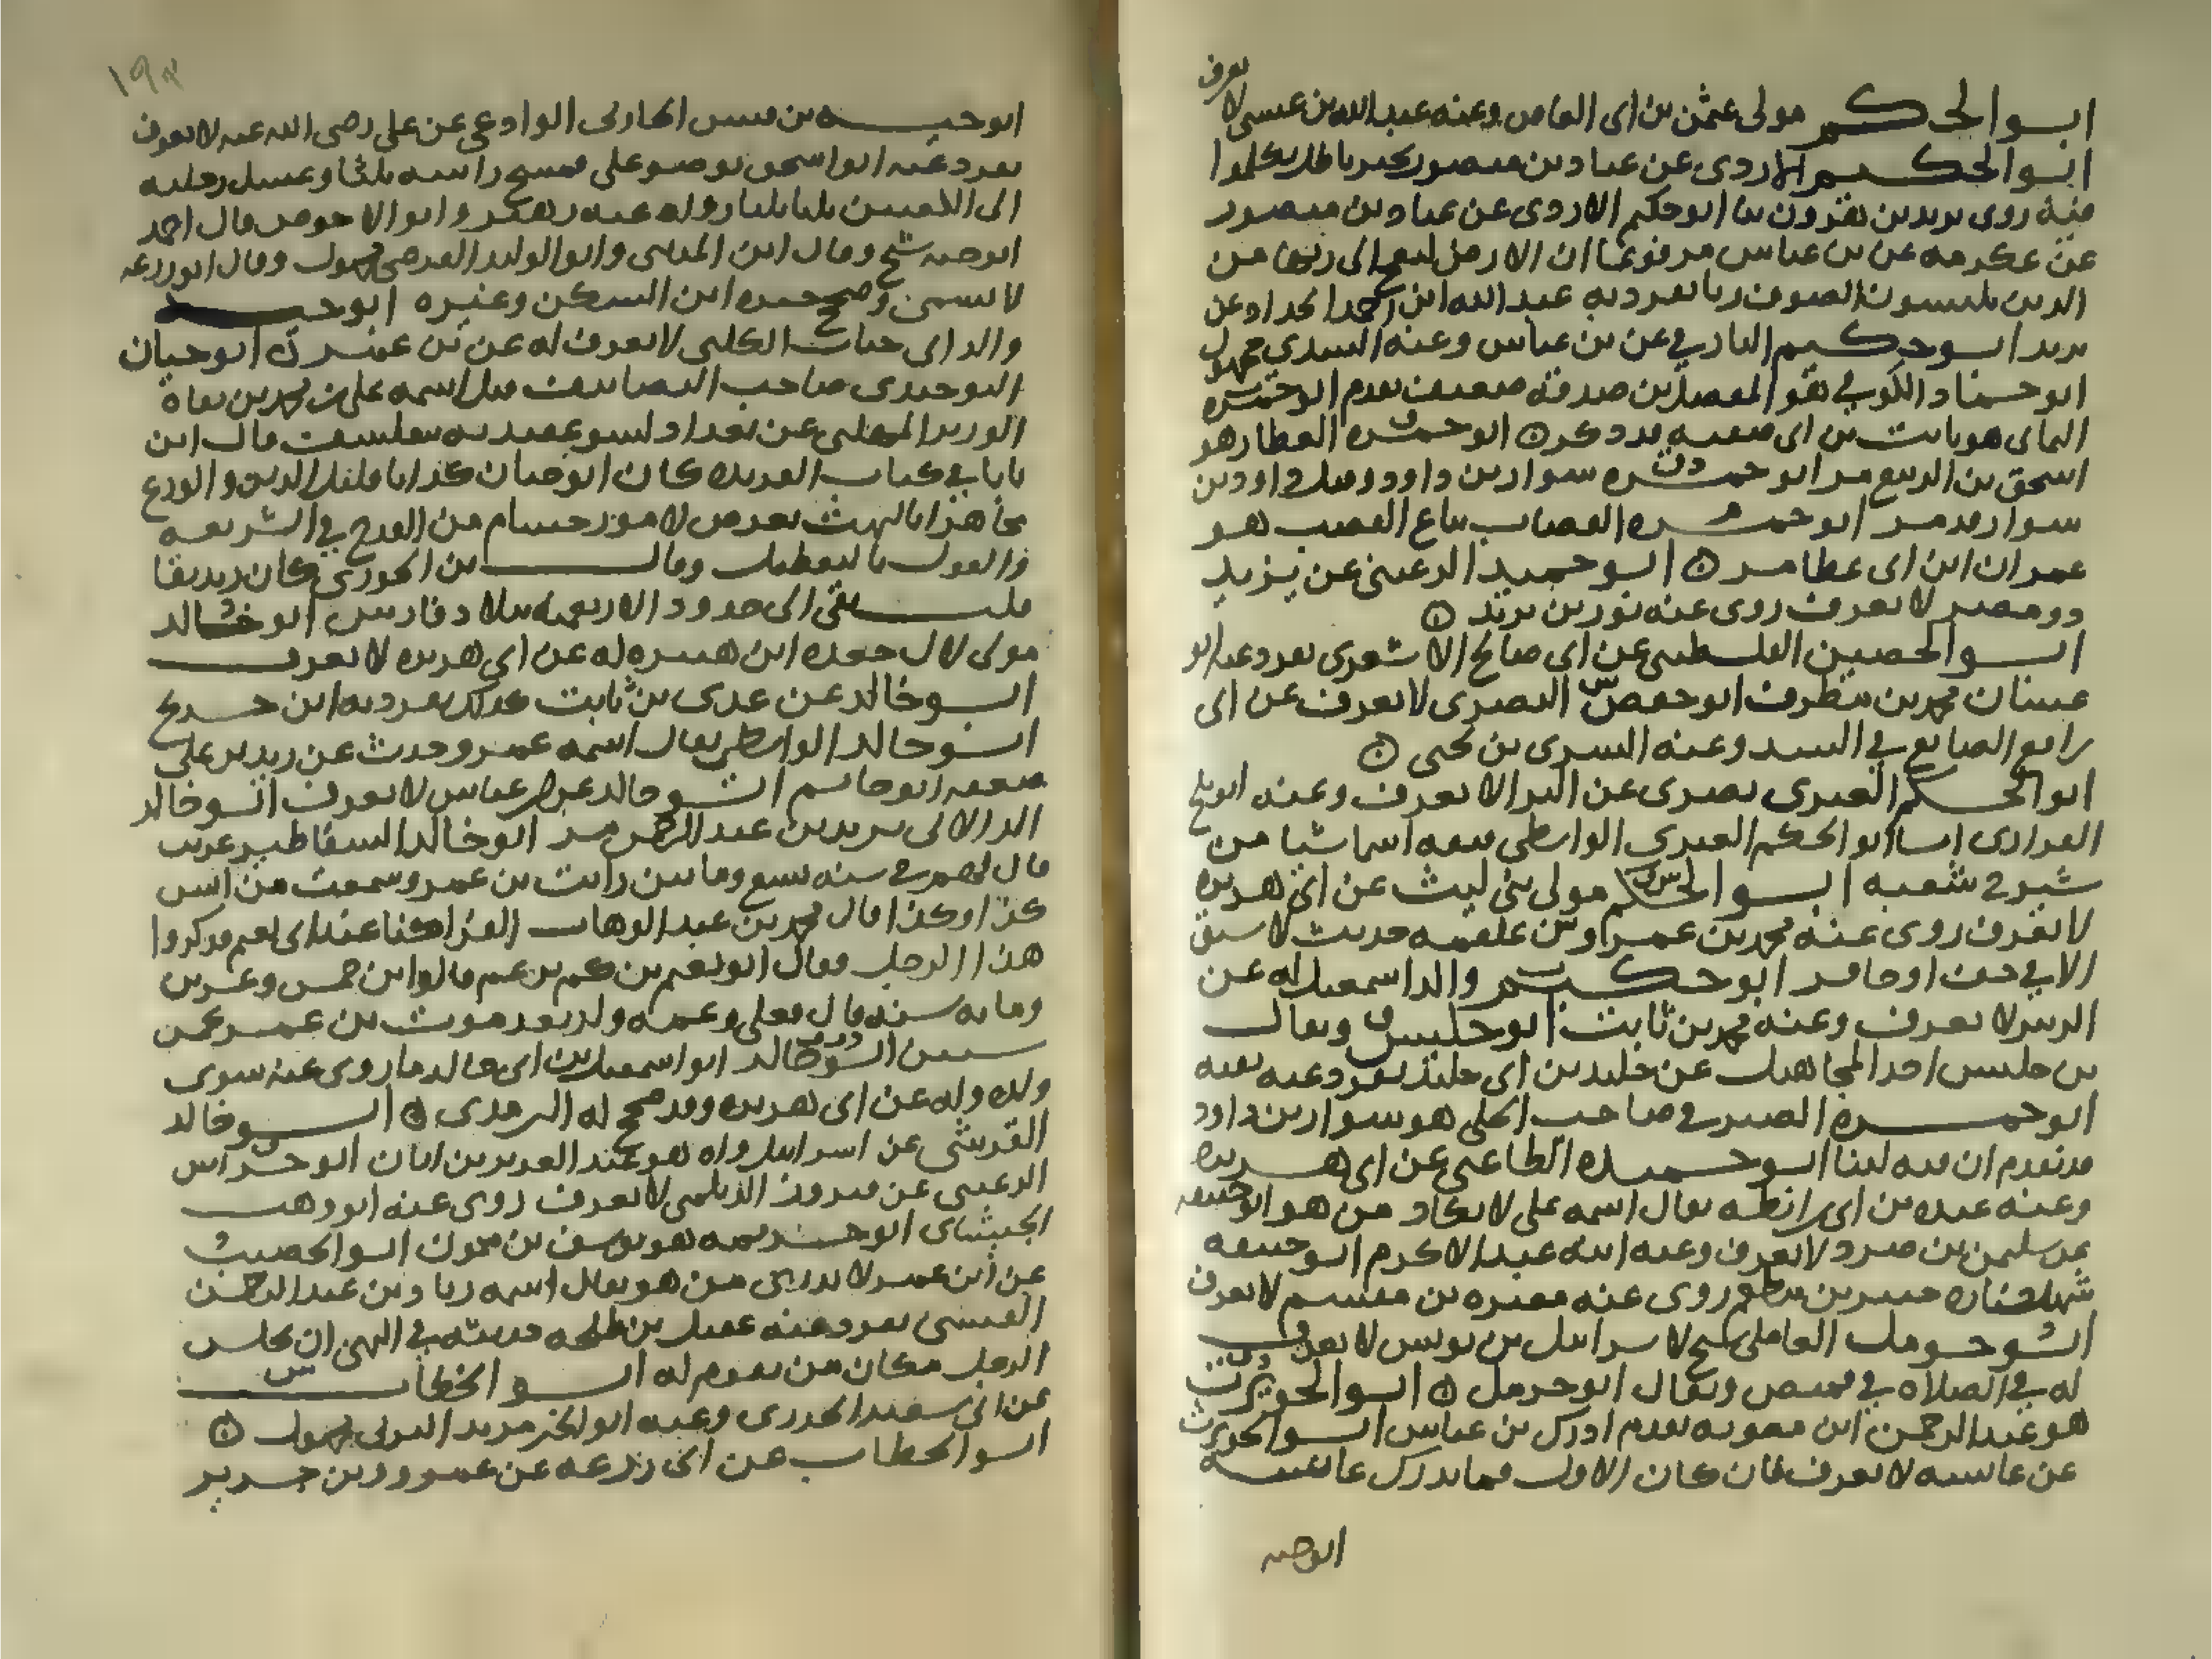 ابو الحكم مولى عثمن بن ابى العاص وعنه عبد الله بن عيسى لا يعرف
ابو الحكيم الازدى عن عباد بن منصور بخبر باطل تكلموا
فيه روى يزيد بن هرون نا ابو حكيم الازدى عن عباد بن منصور
عن عكرمه عن بن عباس مرفوعا ان الارض لتعج الى ربها من
الذين يلبسون الصوف ريا تفرد به عبد الله ابن احمد الحداد عن
يزيد ابو حكيم البارقي عن بن عباس وعنه السدي مجهول
ابو حماد الكوفي هو المفضل بن صدقه ضعيف تقدم ابو حمزه
الثمالى هو ثابت بن ابى صفيه قد ذكر ابو حمزه العطار هو
اسحق بن الربيع مر ابو حمزه سوار بن داود وقيل داود بن
سوار قد مر ابو حمزه القصاب بياع القصب هو
عمران ابن ابى عطا مر ابو حميد الرعينى عن يزيد
ذو مصر لا يعرف روى عنه ثور بن يزيد
ابو الحصين الفلسطينى عن ابى صالح الاشعرى تفرد عنه ابو
غسان محمد بن مطرف ابو حفص البصرى لا يعرف عن ابى
رافع الصايغ في السد وعنه السرى بن يحيى
ابو الحكم العنزى بصرى عن البرا لا يعرف وعنه ابو بلج
الفزارى اما ابو الحكم العنزى الواسطى فيعه اسما شيا من
شيوخ شعبه ابو الحكم مولى بنى ليث عن ابي هريره
لا يعرف روى عنه محمد بن عمرو بن علقمه حديث لا سبق
الا في خف او حافر ابو حكيم والد اسمعيل له عن
الزبير لا يعرف وعنه محمد بن ثابت ابو حلبس ويقال
بن حلبس احد المجاهيل عن خليد بن ابى خليد تفرد عنه بقيه
ابو حمزه الصيرفي صاحب الحلى هو سوار بن داود
قد تقدم ان فيه لينا ابو حميده الطاعنى عن ابى هريره
وعنه عبده بن ابى رائطه يقال اسمه على لا يكاد من هو ابو حنيفه
عن سليمن بن صرد لا يعرف وعنه ابنه عبد الاكرم ابو حنيفه
شهد جنازه جبير بن مطعم روى عنه مغيره بن مقسم لا يعرف
ابو حومل العاملى شيخ لاسرائيل بن يونس لا يعرف
له في الصلاه في قميص ويقال ابو حرمل ابو الحويرث
هو عبد الرحمن ابن معويه تقدم ادرك بن عباس ابو الحويرث
عن عائشه لا يعرف فان كان الاول فما يدرك عائشه
ابو حيه
١٩٢
ابو حيه بن قيس الخارفى الوادعى عن على رضى الله عنه لا يعرف
تفرد عنه ابو اسحق بوضوء على فمسح راسه ثلثا وغسل رجليه
الى الكعبين ثلثا ثلثا رواه عنه زهير وابو الاحوص قال احمد
ابو حيه شيخ وقال ابن المدينى وابو الوليد الفرضى مجهول وقال ابو زرعه
لا يسمى وصحح خبره ابن السكن وغيره ابو حيه
والد ابى جناب الكلبى لا يعرف له عن بن عمر ابو حيان
التوحيدى صاحب التصانيف قيل اسمه على بن محمد بن نفاه
الوزير المهلبى عن بغداد لسو عقيدته يتفلسف قال ابن
بابا في كتاب الفريده كان ابو حيان كذابا قليل الدين والورع
مجاهرا بالبهت تعرض لامور جسام من القدح في الشريعه
والقول بالتعطيل وقال بن الجوزى كان زنديقا
قلت بقى الى حدود الاربعمئه ببلاد فارس ابو خالد
مولى لال جعده ابن هبيره له عن ابى هريره لا يعرف
ابو خالد عن عدى بن ثابت كذلك تفرد به ابن جريج
ابو خالد الواسطى يقال اسمه عمرو حدث عن زيد بن على
ضعفه ابو حاتم ابو خالد عن بن عباس لا يعرف ابو خالد
الدالانى يزيد بن عبد الرحمن مر ابو خالد السقا طير غريب
قال لهم في سنه تسع ومائتين رايت بن عمر وسمعت من انس
كذا وكذا قال محمد بن عبد الوهاب الفرا كنا عند ابى نعيم فذكروا
هذا الرجل فقال ابو نعيم بن كم يزعم قالوا ابن خمس وعشرين
ومايه سنه قال فعلى زعمه ولد بعد موت بن عمر بخمس
سنين ابو خالد ابو اسمعيل بن ابى خالد ما روى عنه سوى
ولده وله عن ابى هريره وقد صحح له الترمذى ابو خالد
القرشى عن اسرائيل واه هو عبد العزيز بن ابان ابو خراش
الرعينى عن فيروز الديلمى لا يعرف روى عنه ابو وهب
الجيشانى ابو خزيمه هو يوسف بن ميمون ابو الخصيب
عن ابن عمر لا يدرى من هو يقال اسمه زياد بن عبد الرحمن
القيسى تفرد عنه عقيل بن طلحه حديثه في النهى ان يجلس
الرجل مكان من يقوم له ابو الخطاب
عن ابى سعيد الخدرى وعنه ابو الخير مرثد اليزنى مجهول
ابو الخطاب عن ابى زرعه عن عمرو بن جرير